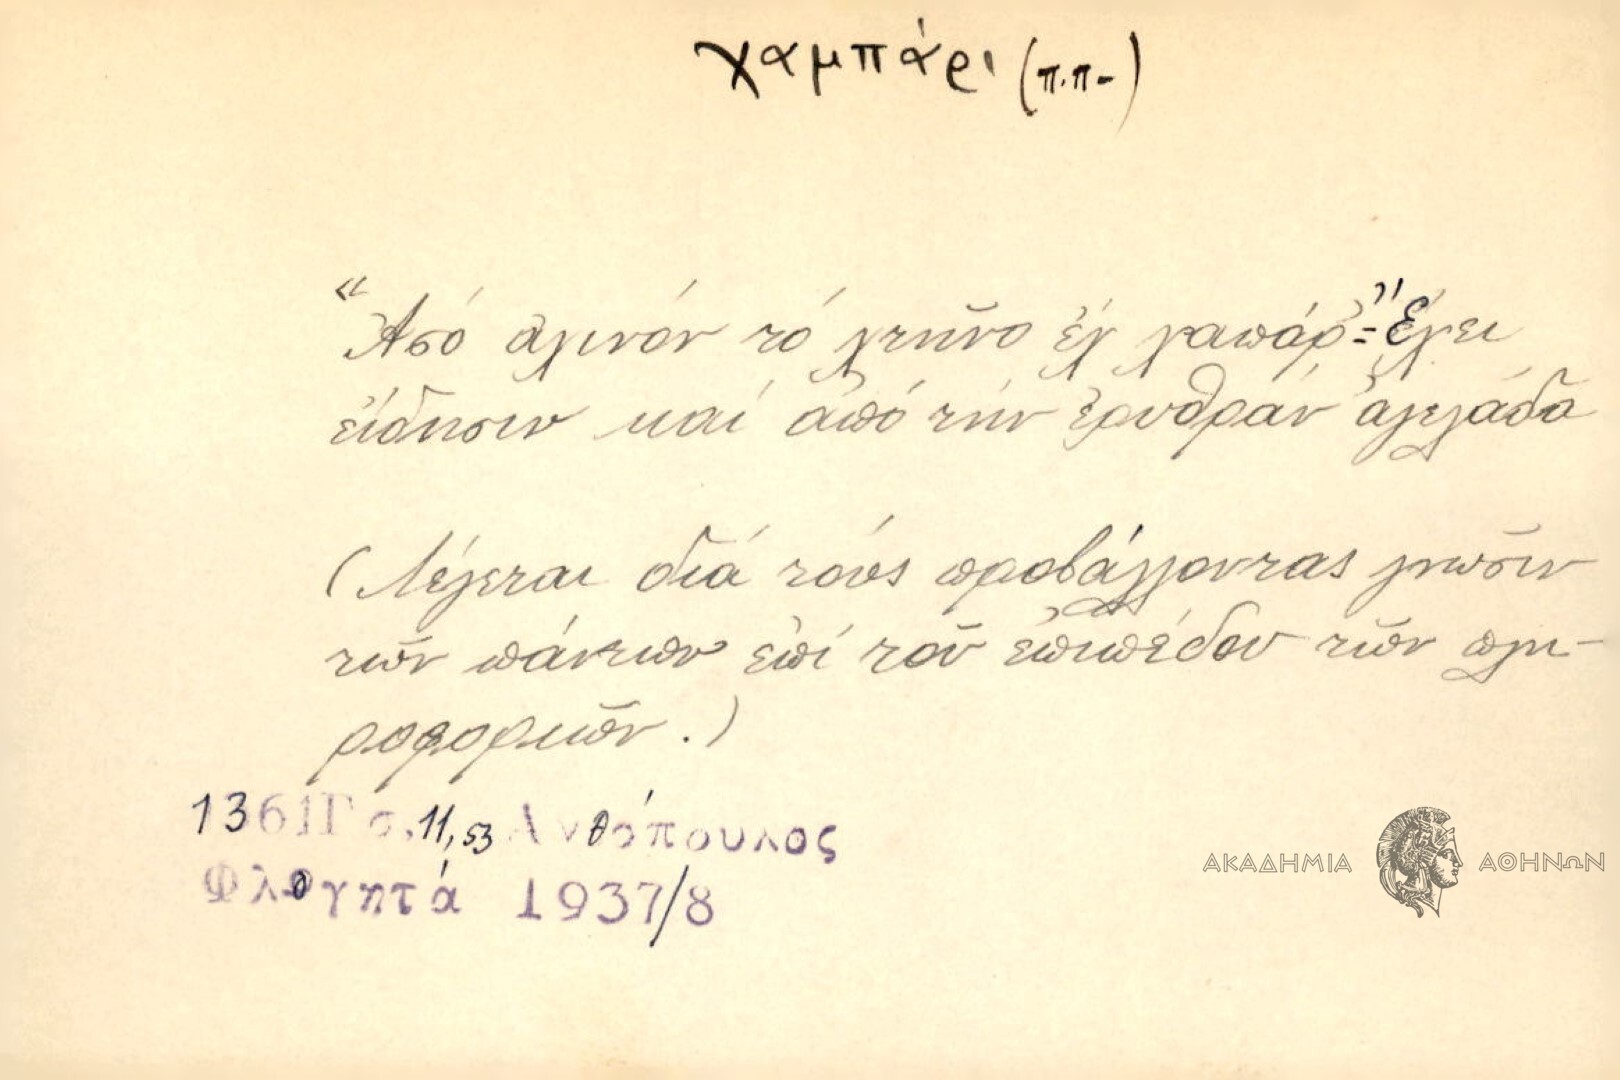 χαμπάρι (π.π-)
«Ἀσό αλινόν τό χτῆνο ἔχ χαπάρ"= Ἔχει
εἴδησιν καί ἀπό τήν ἐρυθράν ἀγελάδα
(Λέγεται διά τούς προβάλλοντας γνῶσιν
τῶν πάντων ἐπί τοῦ ἐπιπέδου τῶν πλη-
ροφοριῶν.)
1361Γ σ. 11, 53 Ανθόπουλος
Φλογητά 1937/8
ΑΚΑΔΗΜΙΑ ΑΘΗΝΩΝ